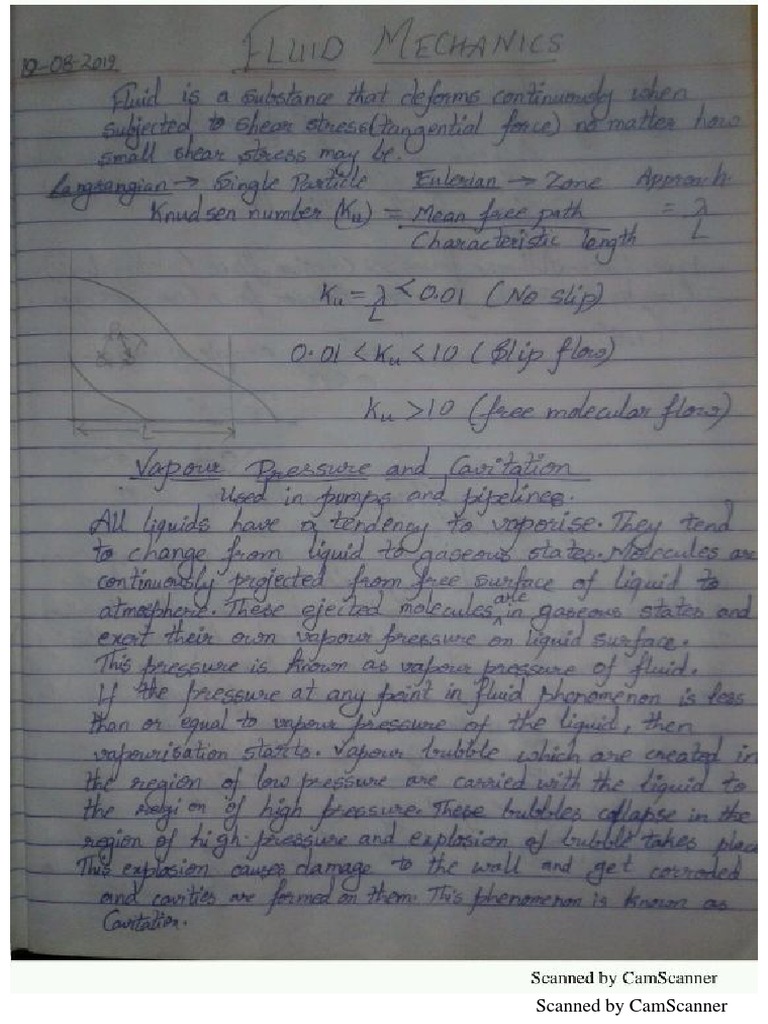 FLUID MECHANICS
12-08-2019
Fluid is a substance that deforms continuously when
subjected to shear stress(tangential force) no matter how
small shear stress may be.
Langrangian → Single Particle Eulerian → Zone Approach
Knudsen number (Ku) = Mean free path = λ
Characteristic length L
Ku = λ < 0.01 (No slip)
L
0.01 < Ku < 10 (Slip flow)
Ku > 10 (free molecular flow)
L
Vapour Pressure and Cavitation
Used in pumps and pipelines.
All liquids have a tendency to vaporise. They tend
to change from liquid to gaseous states. Molecules are
continuously projected from free surface of liquid to
atmosphere. These ejected molecules are in gaseous states and
exert their own vapour pressure on liquid surface.
This pressure is known as vapour pressure of fluid.
If the pressure at any point in fluid phenomenon is less
than or equal to vapour pressure of the liquid, then
vapourisation starts. Vapour bubble which are created in
the region of low pressure are carried with the liquid to
the region of high pressure. These bubbles collapse in the
region of high pressure and explosion of bubble takes place
This explosion causes damage to the wall and get corroded
and cavities are formed on them. This phenomenon is known as
Cavitation.
Scanned by CamScanner
Scanned by CamScanner